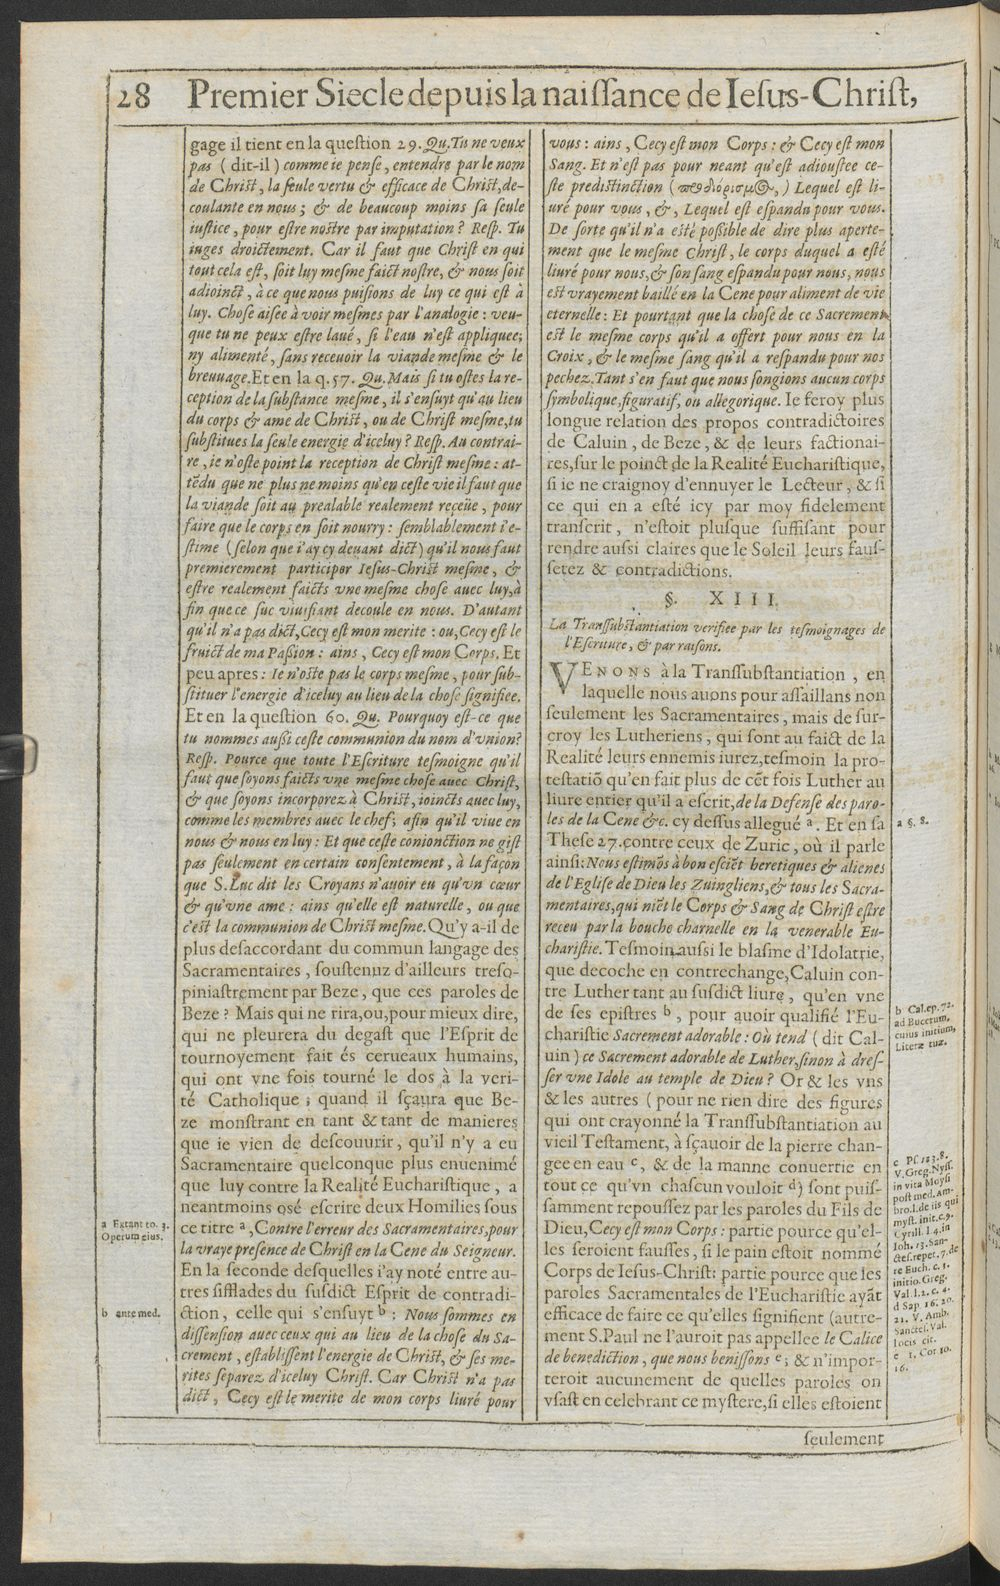 28 Premier Siecle depuis la naiſſance de Ieſus-Chriſt,
gage il tient en la queſtion 29. Qu. Tu ne veux
pas (dit-il) comme ie penſe, entendre par le nom
de Chriſt, la ſeule vertu & efficace de Chriſt, de-
coulante en nous; & de beaucoup moins ſa ſeule
iuſtice, pour eſtre noſtre par imputation? Reſp. Tu
iuges droictement. Car il faut que Chriſt en qui
tout cela eſt, ſoit luy meſme faict noſtre, & nous ſoit
adioinct, à ce que nous puiſions de luy ce qui eſt à
luy. Choſe aiſee à voir meſmes par l'analogie: veu-
que tu ne peux eſtre laué, ſi l'eau n'eſt appliquee;
ny alimenté, ſans receuoir la viande meſme & le
breuuage. Et en la q. 57. Qu. Mais ſi tu oſtes la re-
ception de la ſubſtance meſme, il s'enſuyt qu'au lieu
du corps & ame de Chriſt, ou de Chriſt meſme, tu
ſubſtitues la ſeule energie d'iceluy? Reſp. Au contrai-
re, ie n'oſte point la reception de Chriſt meſme: at-
tẽdu que ne plus ne moins qu'en ceſte vie il faut que
la viande ſoit au prealable realement receüe, pour
faire que le corps en ſoit nourry: ſemblablement i'e-
ſtime (ſelon que i'ay cy deuant dict) qu'il nous faut
premierement participer Ieſus-Chriſt meſme, &
eſtre realement faicts vne meſme choſe auec luy, à
fin que ce ſuc viuifiant decoule en nous. D'autant
qu'il n'a pas dict, Cecy eſt mon merite: ou, Cecy eſt le
fruict de ma Paßion: ains, Cecy eſt mon Corps. Et
peu apres: Ie n'oſte pas le corps meſme, pour ſub-
ſtituer l'energie d'iceluy au lieu de la choſe ſignifiee.
Et en la queſtion 60. Qu. Pourquoy eſt-ce que
tu nommes außi ceſte communion du nom d'vnion?
Reſp. Pource que toute l'Eſcriture teſmoigne qu'il
faut que ſoyons faicts vne meſme choſe auec Chriſt,
& que ſoyons incorporez à Chriſt, ioincts auec luy,
comme les membres auec le chef; afin qu'il viue en
nous & nous en luy: Et que ceſte conionction ne giſt
pas ſeulement en certain conſentement, à la façon
que S. Luc dit les Croyans n'auoir eu qu'vn cœur
& qu'vne ame: ains qu'elle eſt naturelle, ou que
c'eſt la communion de Chriſt meſme. Qu'y a-il de
plus deſaccordant du commun langage des
Sacramentaires, ſouſtenuz d'ailleurs treſo-
piniaſtrement par Beze, que ces paroles de
Beze? Mais qui ne rira, ou, pour mieux dire,
qui ne pleurera du degaſt que l'Eſprit de
tournoyement fait és cerueaux humains,
qui ont vne fois tourné le dos à la veri-
té Catholique; quand il ſçaura que Be-
ze monſtrant en tant & tant de manieres
que ie vien de deſcouurir, qu'il n'y a eu
Sacramentaire quelconque plus enuenimé
que luy contre la Realité Euchariſtique, a
neantmoins oſé eſcrire deux Homilies ſous
a Extant to. 3.
Operum eius.
ce titre a, Contre l'erreur des Sacramentaires, pour
la vraye preſence de Chriſt en la Cene du Seigneur.
En la ſeconde deſquelles i'ay noté entre au-
tres ſifflades du ſuſdict Eſprit de contradi-
b ante med.
ction, celle qui s'enſuyt b: Nous ſommes en
diſſenſion auec ceux qui au lieu de la choſe du Sa-
crement, eſtabliſſent l'energie de Chriſt, & ſes me-
rites ſeparez d'iceluy Chriſt. Car Chriſt n'a pas
dict, Cecy eſt le merite de mon corps liuré pour
vous: ains, Cecy eſt mon Corps: & Cecy eſt mon
Sang. Et n'eſt pas pour neant qu'eſt adiouſtee ce-
ſte prediſtinction () Lequel eſt li-
uré pour vous, &, Lequel eſt eſpandu pour vous.
De ſorte qu'il n'a eſté poßible de dire plus aperte-
ment que le meſme Chriſt, le corps duquel a eſté
liuré pour nous, & ſon ſang eſpandu pour nous, nous
eſt vrayement baillé en la Cene pour aliment de vie
eternelle: Et pourtant que la choſe de ce Sacrement
eſt le meſme corps qu'il a offert pour nous en la
Croix, & le meſme ſang qu'il a reſpandu pour nos
pechez. Tant s'en faut que nous ſongions aucun corps
ſymbolique, figuratif, ou allegorique. Ie feroy plus
longue relation des propos contradictoires
de Caluin, de Beze, & de leurs factionai-
res, ſur le poinct de la Realité Euchariſtique,
ſi ie ne craignoy d'ennuyer le Lecteur, & ſi
ce qui en a eſté icy par moy fidelement
tranſcrit, n'eſtoit pluſque ſuffiſant pour
rendre auſſi claires que le Soleil leurs fauſ-
ſetez & contradictions.
§. XIII.
La Tranſſubſtantiation verifiee par les teſmoignages de
l'Eſcriture, & par raiſons.
VENONS à la Tranſſubſtantiation, en
laquelle nous auons pour aſſaillans non
ſeulement les Sacramentaires, mais de ſur-
croy les Lutheriens, qui ſont au faict de la
Realité leurs ennemis iurez, teſmoin la pro-
teſtatiõ qu'en fait plus de cẽt fois Luther au
liure entier qu'il a eſcrit, de la Defenſe des paro-
les de la Cene &c. cy deſſus allegué a. Et en ſa
a §. 8.
Theſe 27. contre ceux de Zuric, où il parle
ainſi: Nous eſtimõs à bon eſciẽt heretiques & alienes
de l'Egliſe de Dieu les Zuingliens, & tous les Sacra-
mentaires, qui niẽt le Corps & Sang de Chriſt eſtre
receu par la bouche charnelle en la venerable Eu-
chariſtie. Teſmoin auſſi le blaſme d'Idolatrie,
que decoche en contrechange, Caluin con-
tre Luther tant au ſuſdict liure, qu'en vne
de ſes epiſtres b, pour auoir qualifié l'Eu-
b Cal. ep. 72.
ad Bucerum,
cuius initium,
Literæ tuæ.
chariſtie Sacrement adorable: Où tend (dit Cal-
uin) ce Sacrement adorable de Luther, ſinon à dreſ-
ſer vne Idole au temple de Dieu? Or & les vns
& les autres (pour ne rien dire des figures
qui ont crayonné la Tranſſubſtantiation au
vieil Teſtament, à ſçauoir de la pierre chan-
gee en eau c, & de la manne conuertie en
tout ce qu'vn chaſcun vouloit d) ſont puiſ-
ſamment repouſſez par les paroles du Fils de
Dieu, Cecy eſt mon Corps: partie pource qu'el-
les ſeroient fauſſes, ſi le pain eſtoit nommé
Corps de Ieſus-Chriſt: partie pource que les
paroles Sacramentales de l'Euchariſtie ayãt
efficace de faire ce qu'elles ſignifient (autre-
ment S. Paul ne l'auroit pas appellee le Calice
de benediction, que nous beniſſons e; & n'impor-
teroit aucunement de quelles paroles on
vſaſt en celebrant ce myſtere, ſi elles eſtoient
c Pſ. 113. 8.
V. Greg. Nyſſ.
in vita Moyſi
poſt med. Am-
bro. l. de iis qui
myſt. init. c. 9.
Cyrill. l. 4. in
Ioh. 13. San-
ctes. repet. 7. de
re Euch. c. 1.
initio. Greg.
Val. l. 2. c. 4.
d Sap. 16. 20.
21. V. Amb.
Sanctes. Val.
locis cit.
e 1. Cor 10.
16.
ſeulement